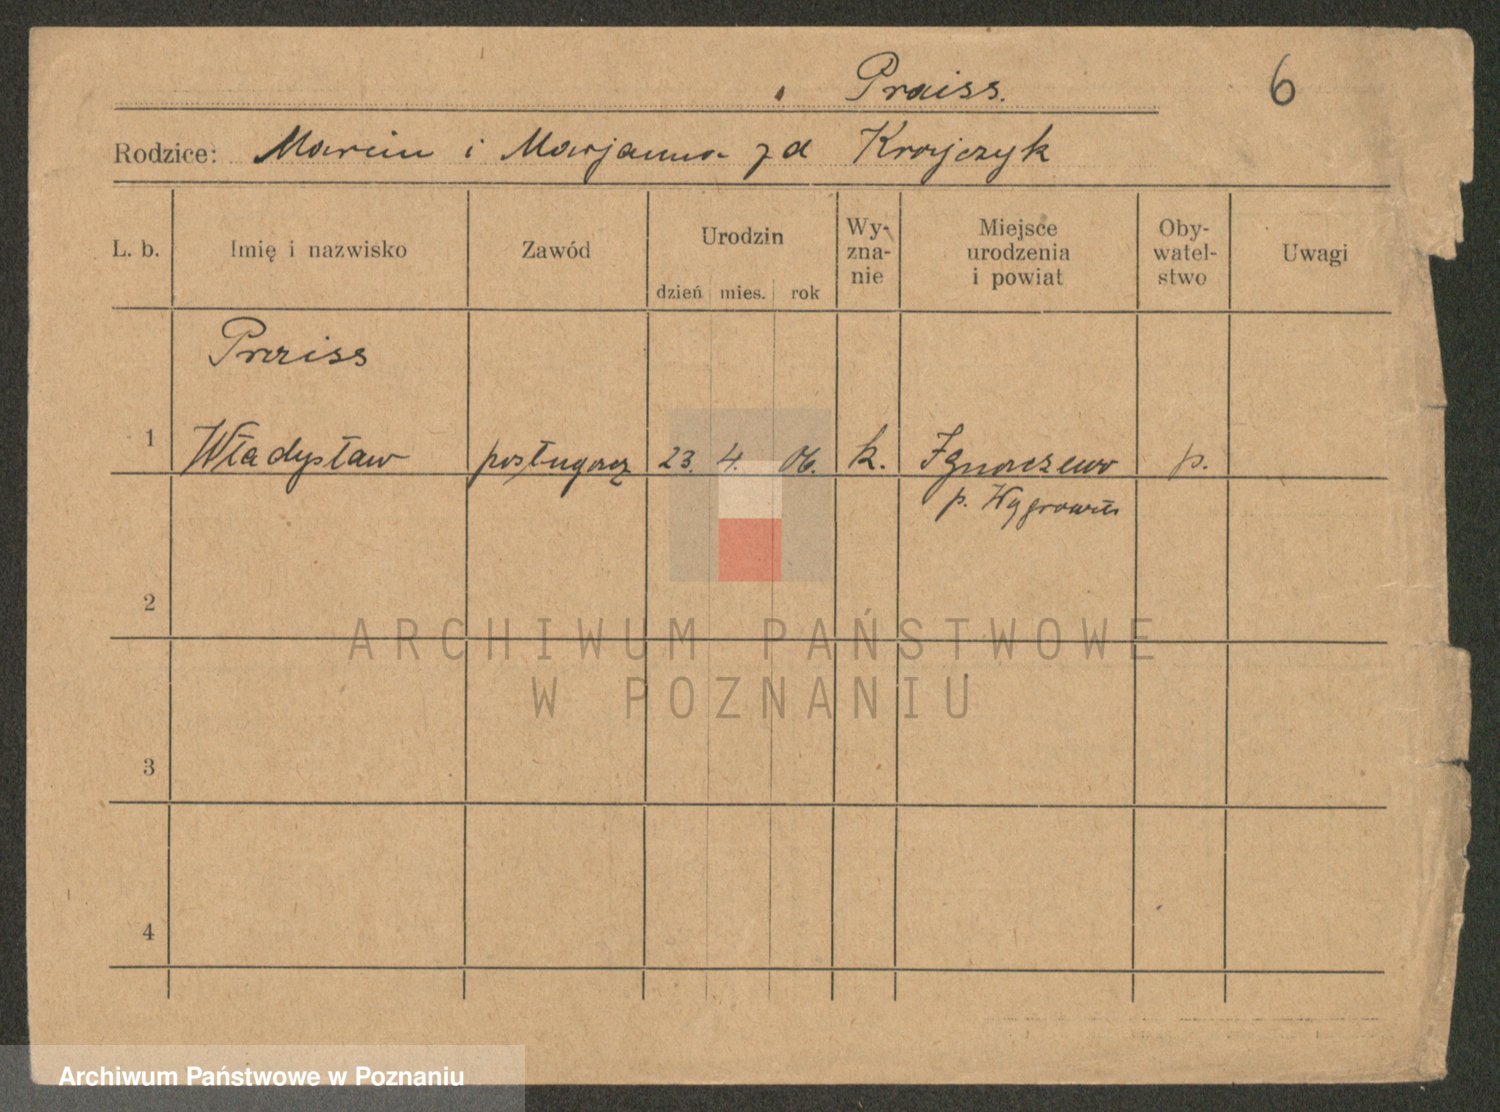 Praiss. 6
Rodzice: Marcin i Marjanna zd Krajczyk
L. b. Imię i nazwisko Zawód Urodzin dzień mies. rok Wy-zna-nie Miejsce urodzenia i powiat Oby-watel-stwo Uwagi
Praiss
1 Władysław posługacz 23. 4. 06. k. Ignaczewo p.
p.
2
ARCHIWUM PAŃSTWOWE
W POZNANIU
3
4
Archiwum Państwowe w Poznaniu